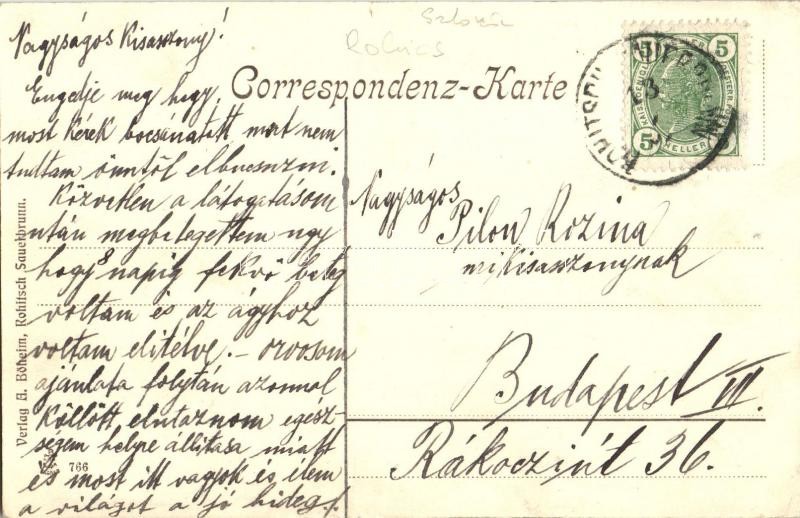 Nagyságos Kisasszony!
Engedje meg hogy
most kérek bocsánatott mert nem
tudtam önntől elbucsuzni.
Közvetlen a látogatásom
után megbetegettem ugy
hogy 8 napig fekvő beteg
voltam és az ágyhoz
voltam elitélve. – orvosom
ajánlata folytán azonnal
köllött elutaznom egész-
ségem helyre állitása miatt
és most itt vagyok és élem
a világot a jó hideg
Correspondenz-Karte
5 5
5 HELLER
ROHITSCH
Nagyságos
Pilon Rozina
urikisasszonynak
Budapest VII.
Rákocziút 36.
Verlag A. Böheim, Rohitsch Sauerbrunn.
766